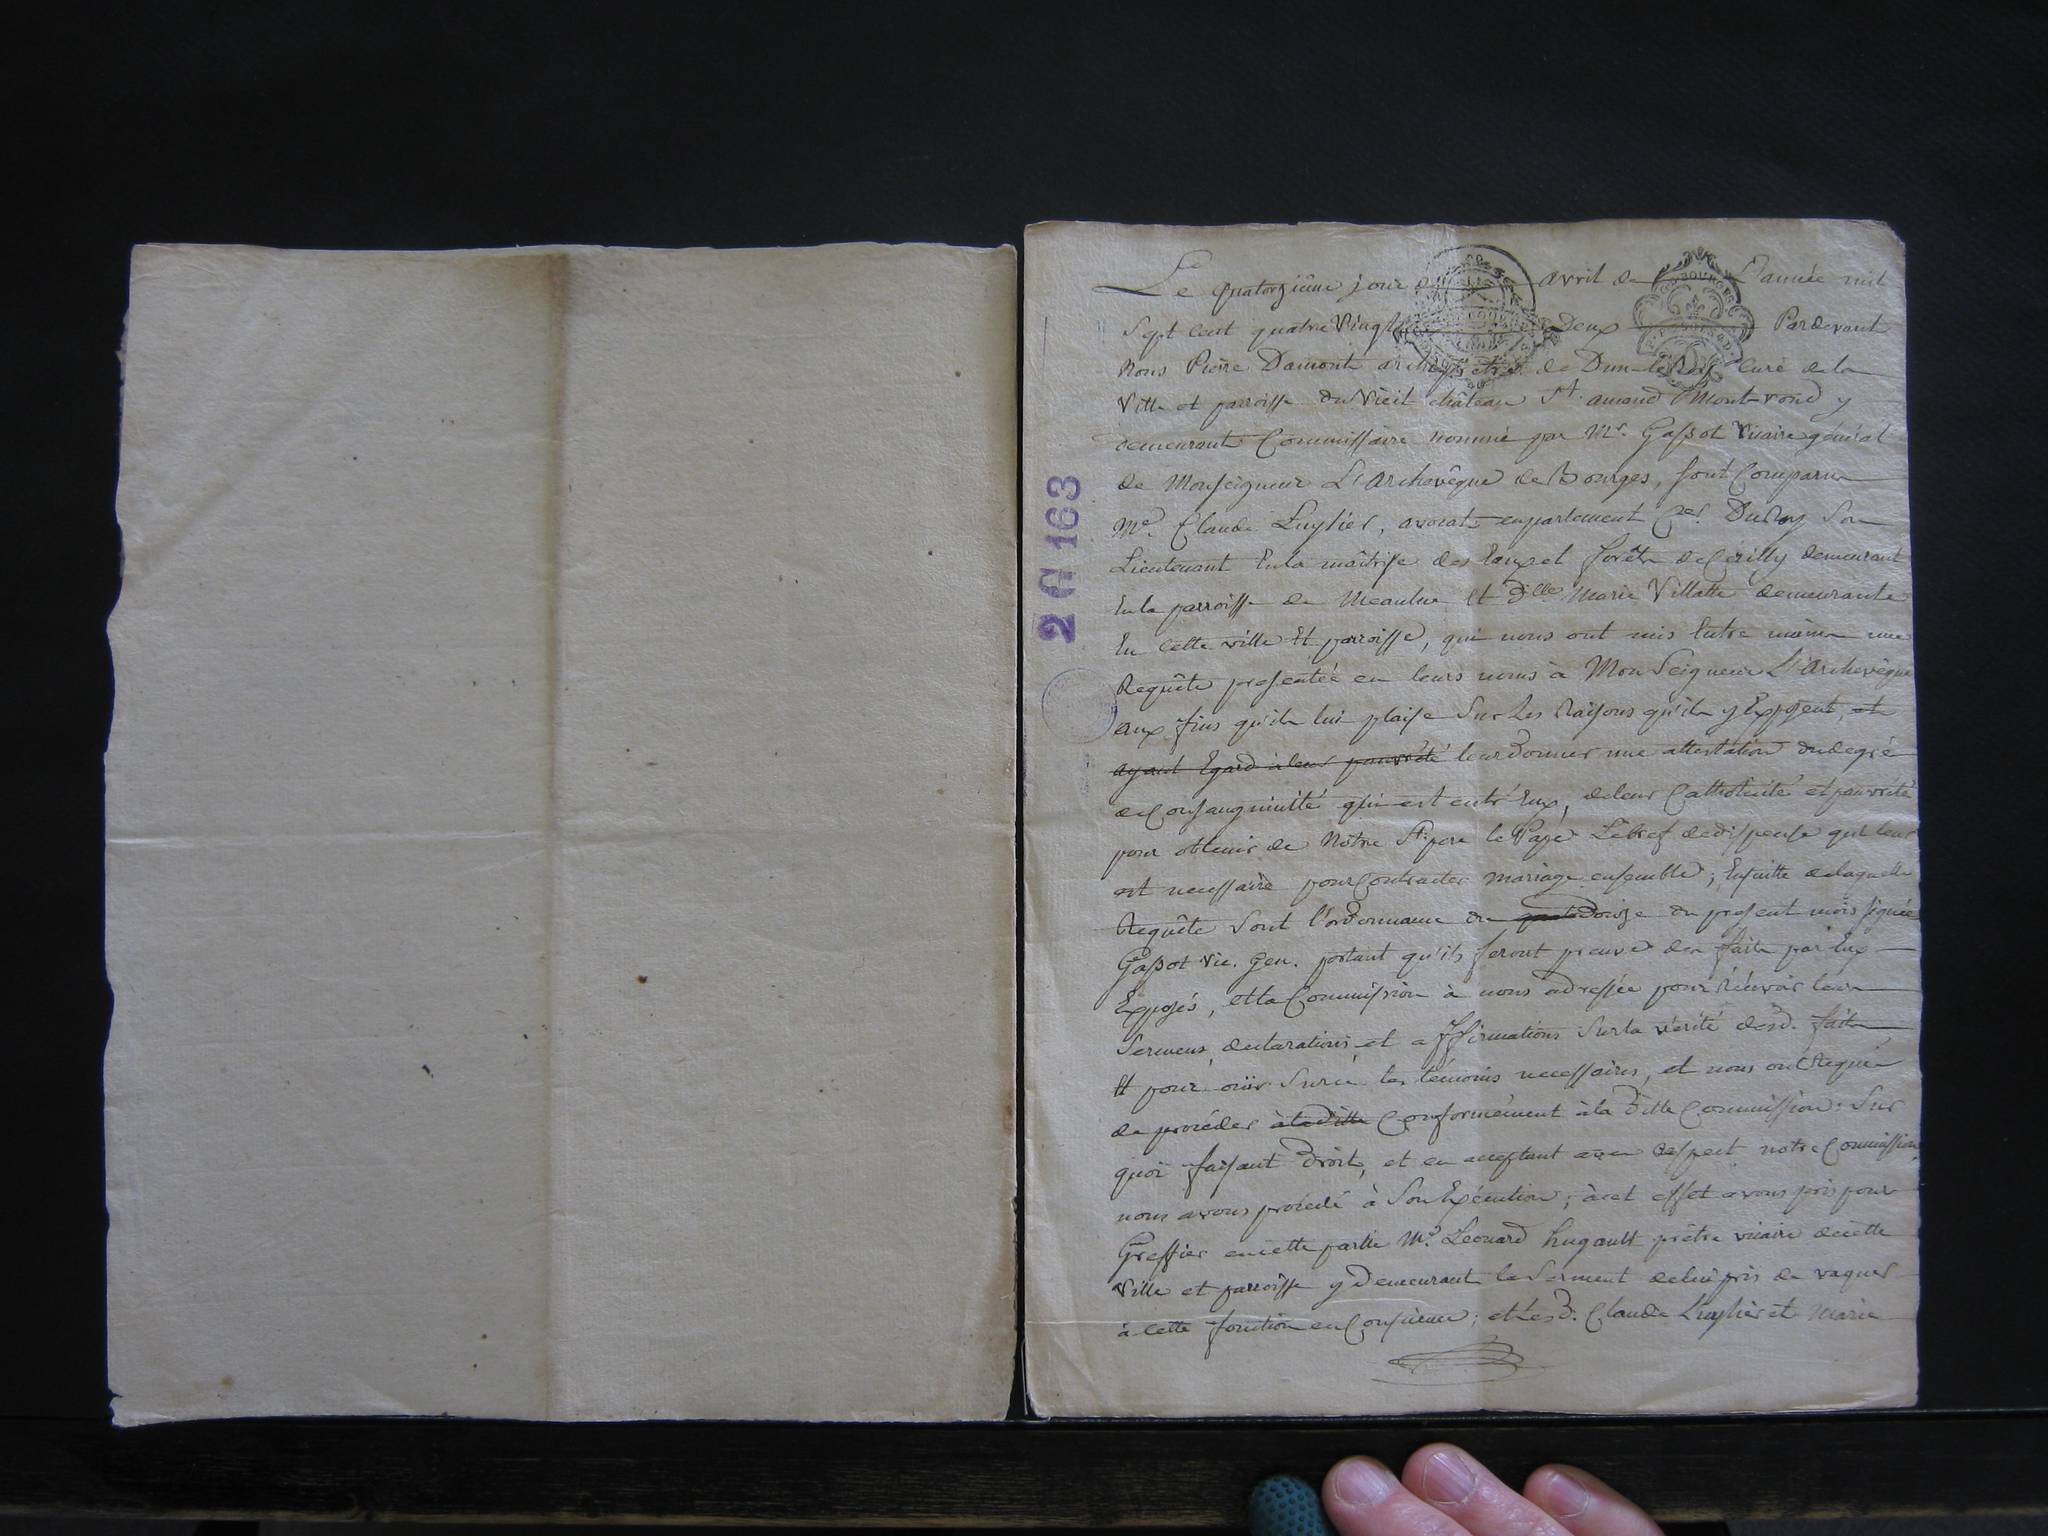 Le quatorzième jour de avril de L'année mil
Sept cent quatre Vingt Deux Pardevant
Nous Pierre Damont archiprêtre de Dun-le-Roy Curé de la
Ville et parroisse du Vieil château St. amand Montrond y
demeurant Commissaire nommé par Mr. Gassot Vicaire général
de Monseigneur L'Archevêque de Bourges, sont Comparus
Me. Claude Luylier, avocat en parlement Cer. Du Roy Son
Lieutenant En la maîtrise des Eaux et forêts de Cérilly demeurant
En la parroisse de Meaulne Et dlle Marie Villatte demeurante
En cette ville Et parroisse, qui nous ont mis Entre mains une
Requête presentée en leurs noms à Mon Seigneur L'Archevêque
aux fins qu'il lui plaise Sur Les Raisons qu'ils y Exposent, et
ayant Egard à leur pauvreté leur donner une attestation du degré
de Consanguinité qui est entr'Eux, de leur Catholicité et pauvreté
pour obtenir de Notre St. pere le Pape Le bref de dispense qui leur
est necessaire pour Contracter mariage ensemble; Ensuitte de laquelle
Requête Sont l'ordonnance du douze du present mois signée
Gassot Vic. Gen. portant qu'ils feront preuve des faits par Eux
Exposés, et la Commission à nous adressée pour récevoir leurs
Sermens, declarations et affirmations Sur la vérité desd. faits
Et pour oüir Sur ce les témoins necessaires, et nous ont Requis
de procéder à la ditte Conformément à la ditte Commission; Sur
quoi faisant droit, et en acceptant avec respect notre Commission
nous avons procédé à Son Exécution; à cet effet avons pris pour
Greffier en cette partie Me. Léonard hugault prêtre vicaire de cette
Ville et parroisse y Demeurant le Serment de lui pris de vaquer
à cette fonction en Conscience; et Lesd. Claude Luylier et Marie
2 G 163